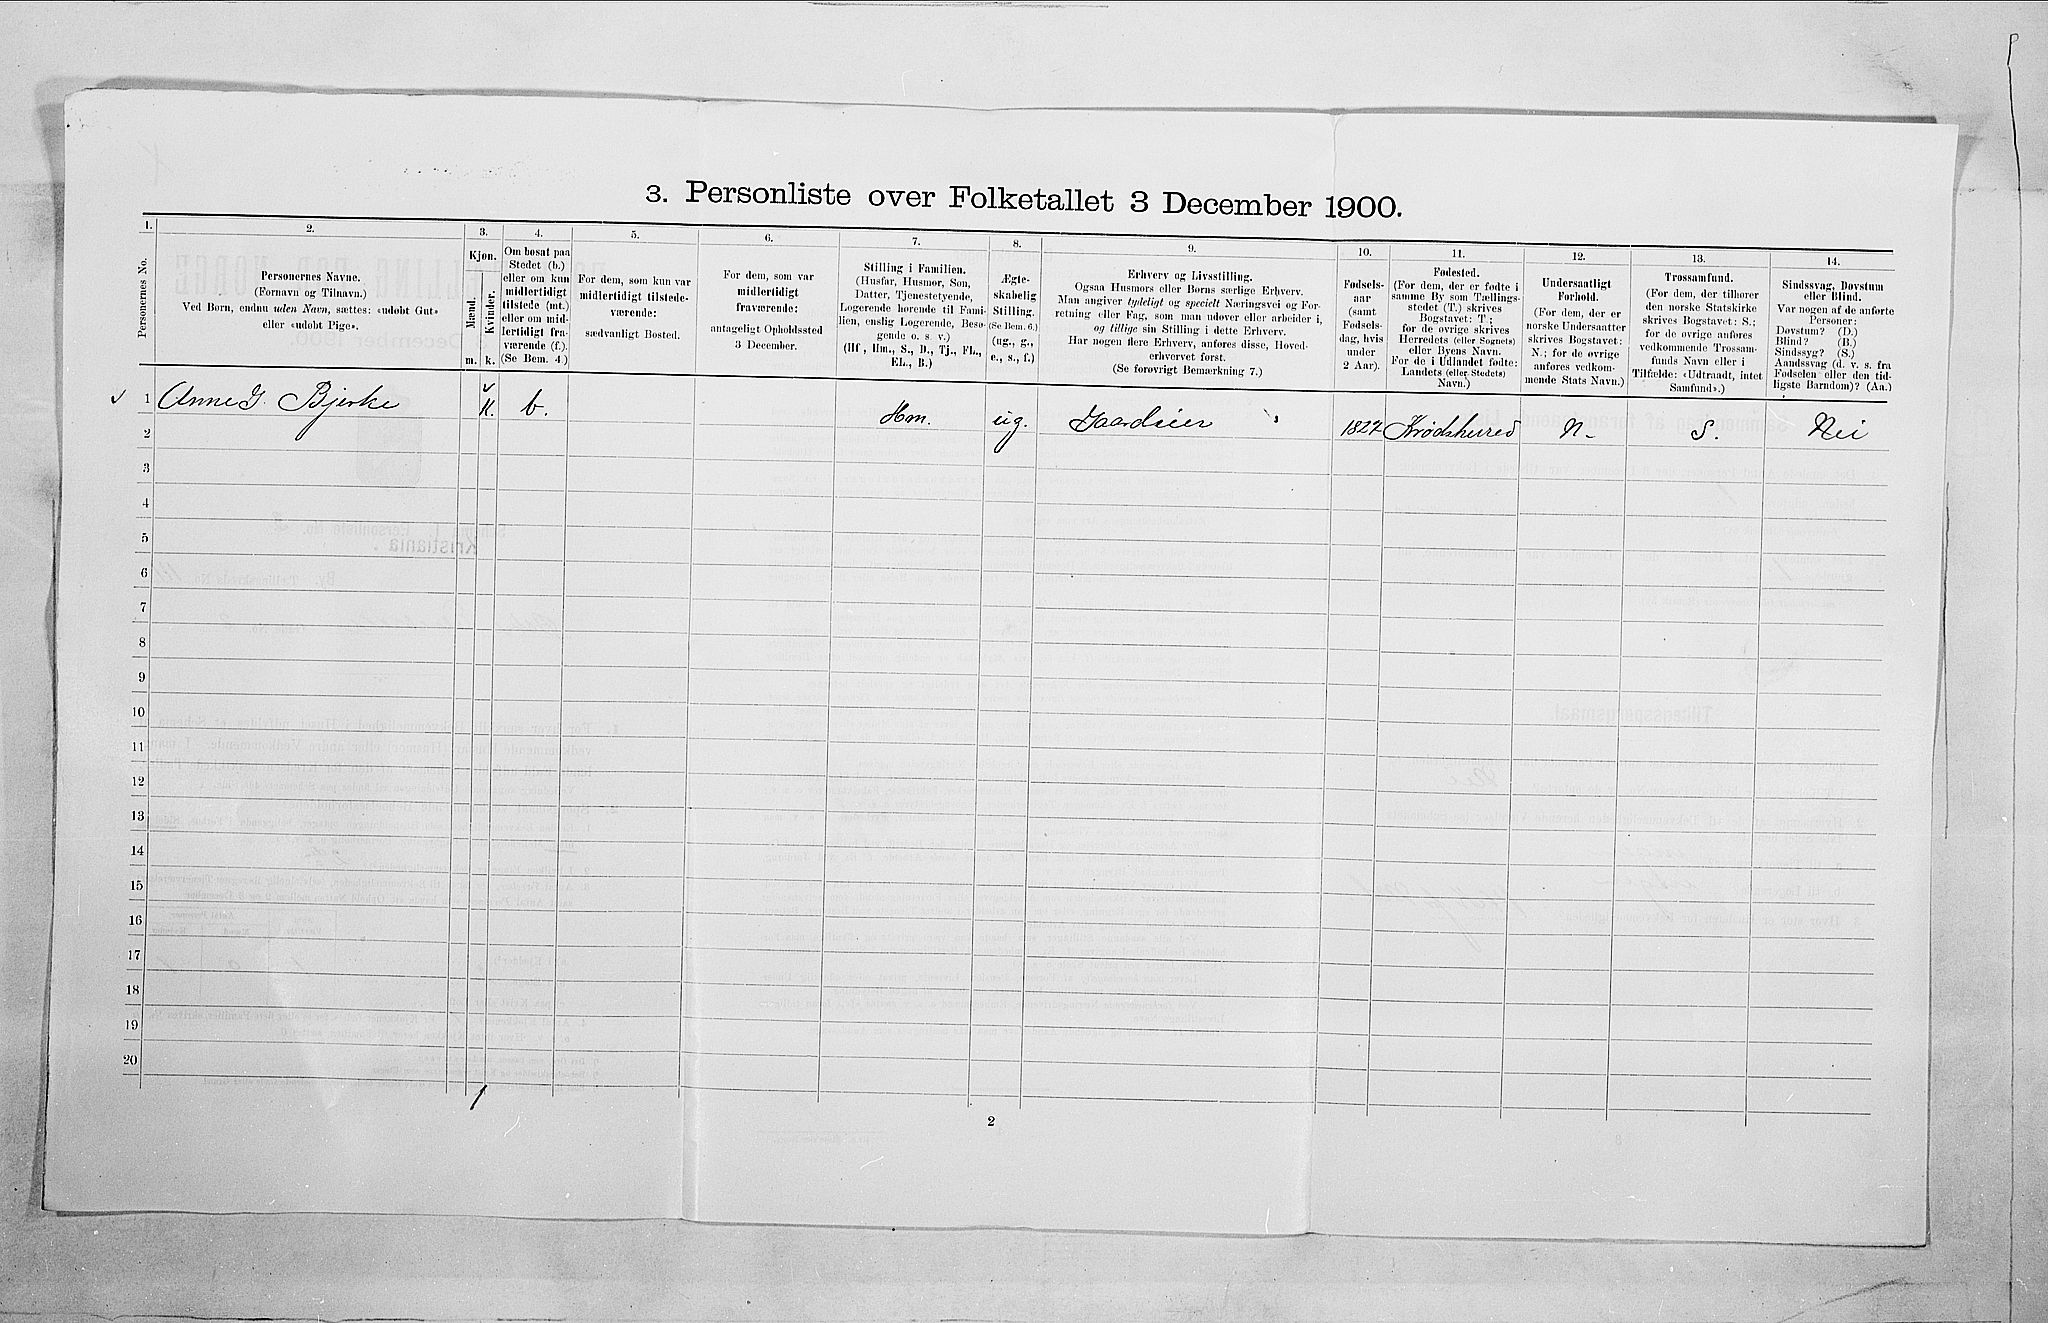 3. Personliste over Folketallet 3 December 1900.
1.
2.
3.
4.
5.
6.
7.
8.
9.
10.
11.
12.
13.
14.
Personernes No.
Personernes Navne.
(Fornavn og Tilnavn.)
Ved Børn, endnu uden Navn, sættes: «udøbt Gut»
eller «udøbt Pige».
Kjøn.
Mænd.
Kvinder.
m.
k.
Om bosat paa
Stedet (b.)
eller om kun
midlertidigt
tilstede (mt.)
eller om mid-
lertidigt fra-
værende (f.).
(Se Bem. 4.)
For dem, som kun var
midlertidigt tilstede-
værende:
sædvanligt Bosted.
For dem, som var
midlertidigt
fraværende:
antageligt Opholdssted
3 December.
Stilling i Familien.
(Husfar, Husmor, Søn,
Datter, Tjenestetyende,
Logerende hørende til Fami-
lien, enslig Logerende, Besø-
gende o. s. v.)
(Hf, Hm., S., D., Tj., FL.,
EL., B.)
Ægte-
skabelig
Stilling.
(Se Bem. 6.)
(ug., g.,
e., s., f.)
Erhverv og Livsstilling.
Ogsaa Husmors eller Børns særlige Erhverv.
Man angiver tydeligt og specielt Næringsvei og For-
retning eller Fag, som man udøver eller arbeider i,
og tillige sin Stilling i dette Erhverv.
Har nogen flere Erhverv, anføres disse, Hoved-
erhvervet først.
(Se forøvrigt Bemærkning 7.)
Fødsels-
aar
(samt
Fødsels-
dag, hvis
under
2 Aar).
Fødested.
(For dem, der er fødte i
samme By som Tællings-
stedet (T.) skrives
Bogstavet: T;
for de øvrige skrives
Herredets (eller Sognets)
eller Byens Navn.
For de i Udlandet fødte:
Landets (eller Stedets)
Navn.)
Undersaatligt
Forhold.
(For dem, der er
norske Undersaatter
skrives Bogstavet:
N.; for de øvrige
anføres vedkom-
mende Stats Navn.)
Trossamfund.
(For dem, der tilhører
den norske Statskirke
skrives Bogstavet: S.;
for de øvrige anføres
vedkommende Trossam-
funds Navn eller i
Tilfælde: «Udtraadt, intet
Samfund».)
Sindssvag, Døvstum
eller Blind.
Var nogen af de anførte
Personer:
Døvstum? (D.)
Blind? (B.)
Sindssyg? (S.)
Aandssvag (d. v. s. fra
Fødselen eller den tid-
ligste Barndom)? (Aa.)
1 Anne G. Bjerke k. b. Hm. ug. Gaardeier 1827 Krødsherred N. S. Nei
2
3
4
5
6
7
8
9
10
11
12
13
14
15
16
17
18
19
20
1
2